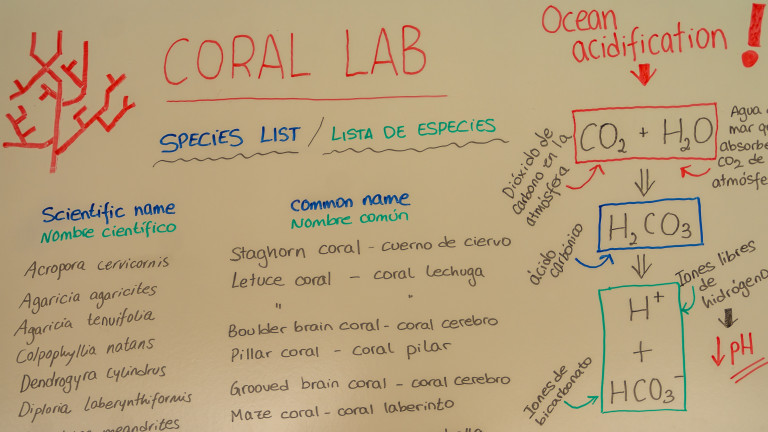 CORAL LAB
SPECIES LIST / LISTA DE ESPECIES
Scientific name
Nombre científico
Acropora cervicornis
Agaricia agaricites
Agaricia tenuifolia
Colpophyllia natans
Dendrogyra cylindrus
Diploria laberynthiformis
meandrites
Common name
Nombre común
Staghorn coral - cuerno de ciervo
Letuce coral - coral lechuga
" "
Boulder brain coral - coral cerebro
Pillar coral - coral pilar
Grooved brain coral - coral cerebro
Maze coral - coral laberinto
Ocean
acidification!
Dióxido de
carbono en la
atmósfera
CO₂ + H₂O
Agua
mar
absorbe
CO₂ de
ácido
carbónico
H₂CO₃
Iones libres
de
hidrógeno
H⁺
+
HCO₃⁻
↓ pH
Iones de
bicarbonato